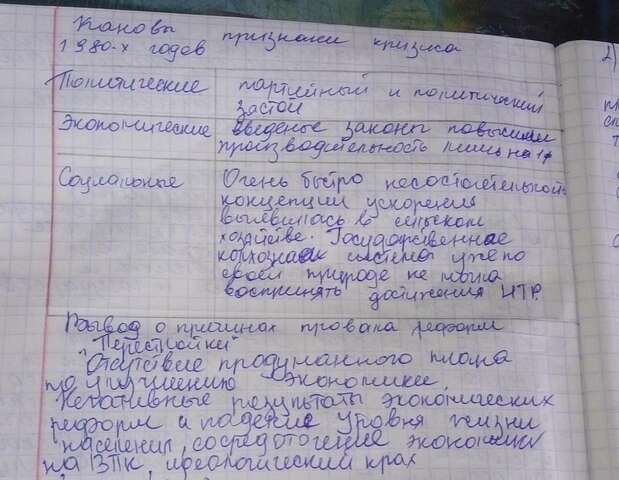 Каковы признаки кризиса
1980-х годов
Политические партийный и политический
застой
Экономические введеные законы повысили
производительность лишь на 1%
Социальные Очень быстро несостоятельность
концепции ускорения
выявилась в сельском
хозяйстве. Государственнае
колхозная система уже по
своей природе не могла
воспринять достижения НТР.
Вывод о причинах провала реформ
"Перестройки"
Отсутствие продуманного плана
по улучшению экономики,
Негативные результаты экономических
реформ и падение уровня жизни
населения, сосредоточение экономики
на ВПК, идеологический крах
2)